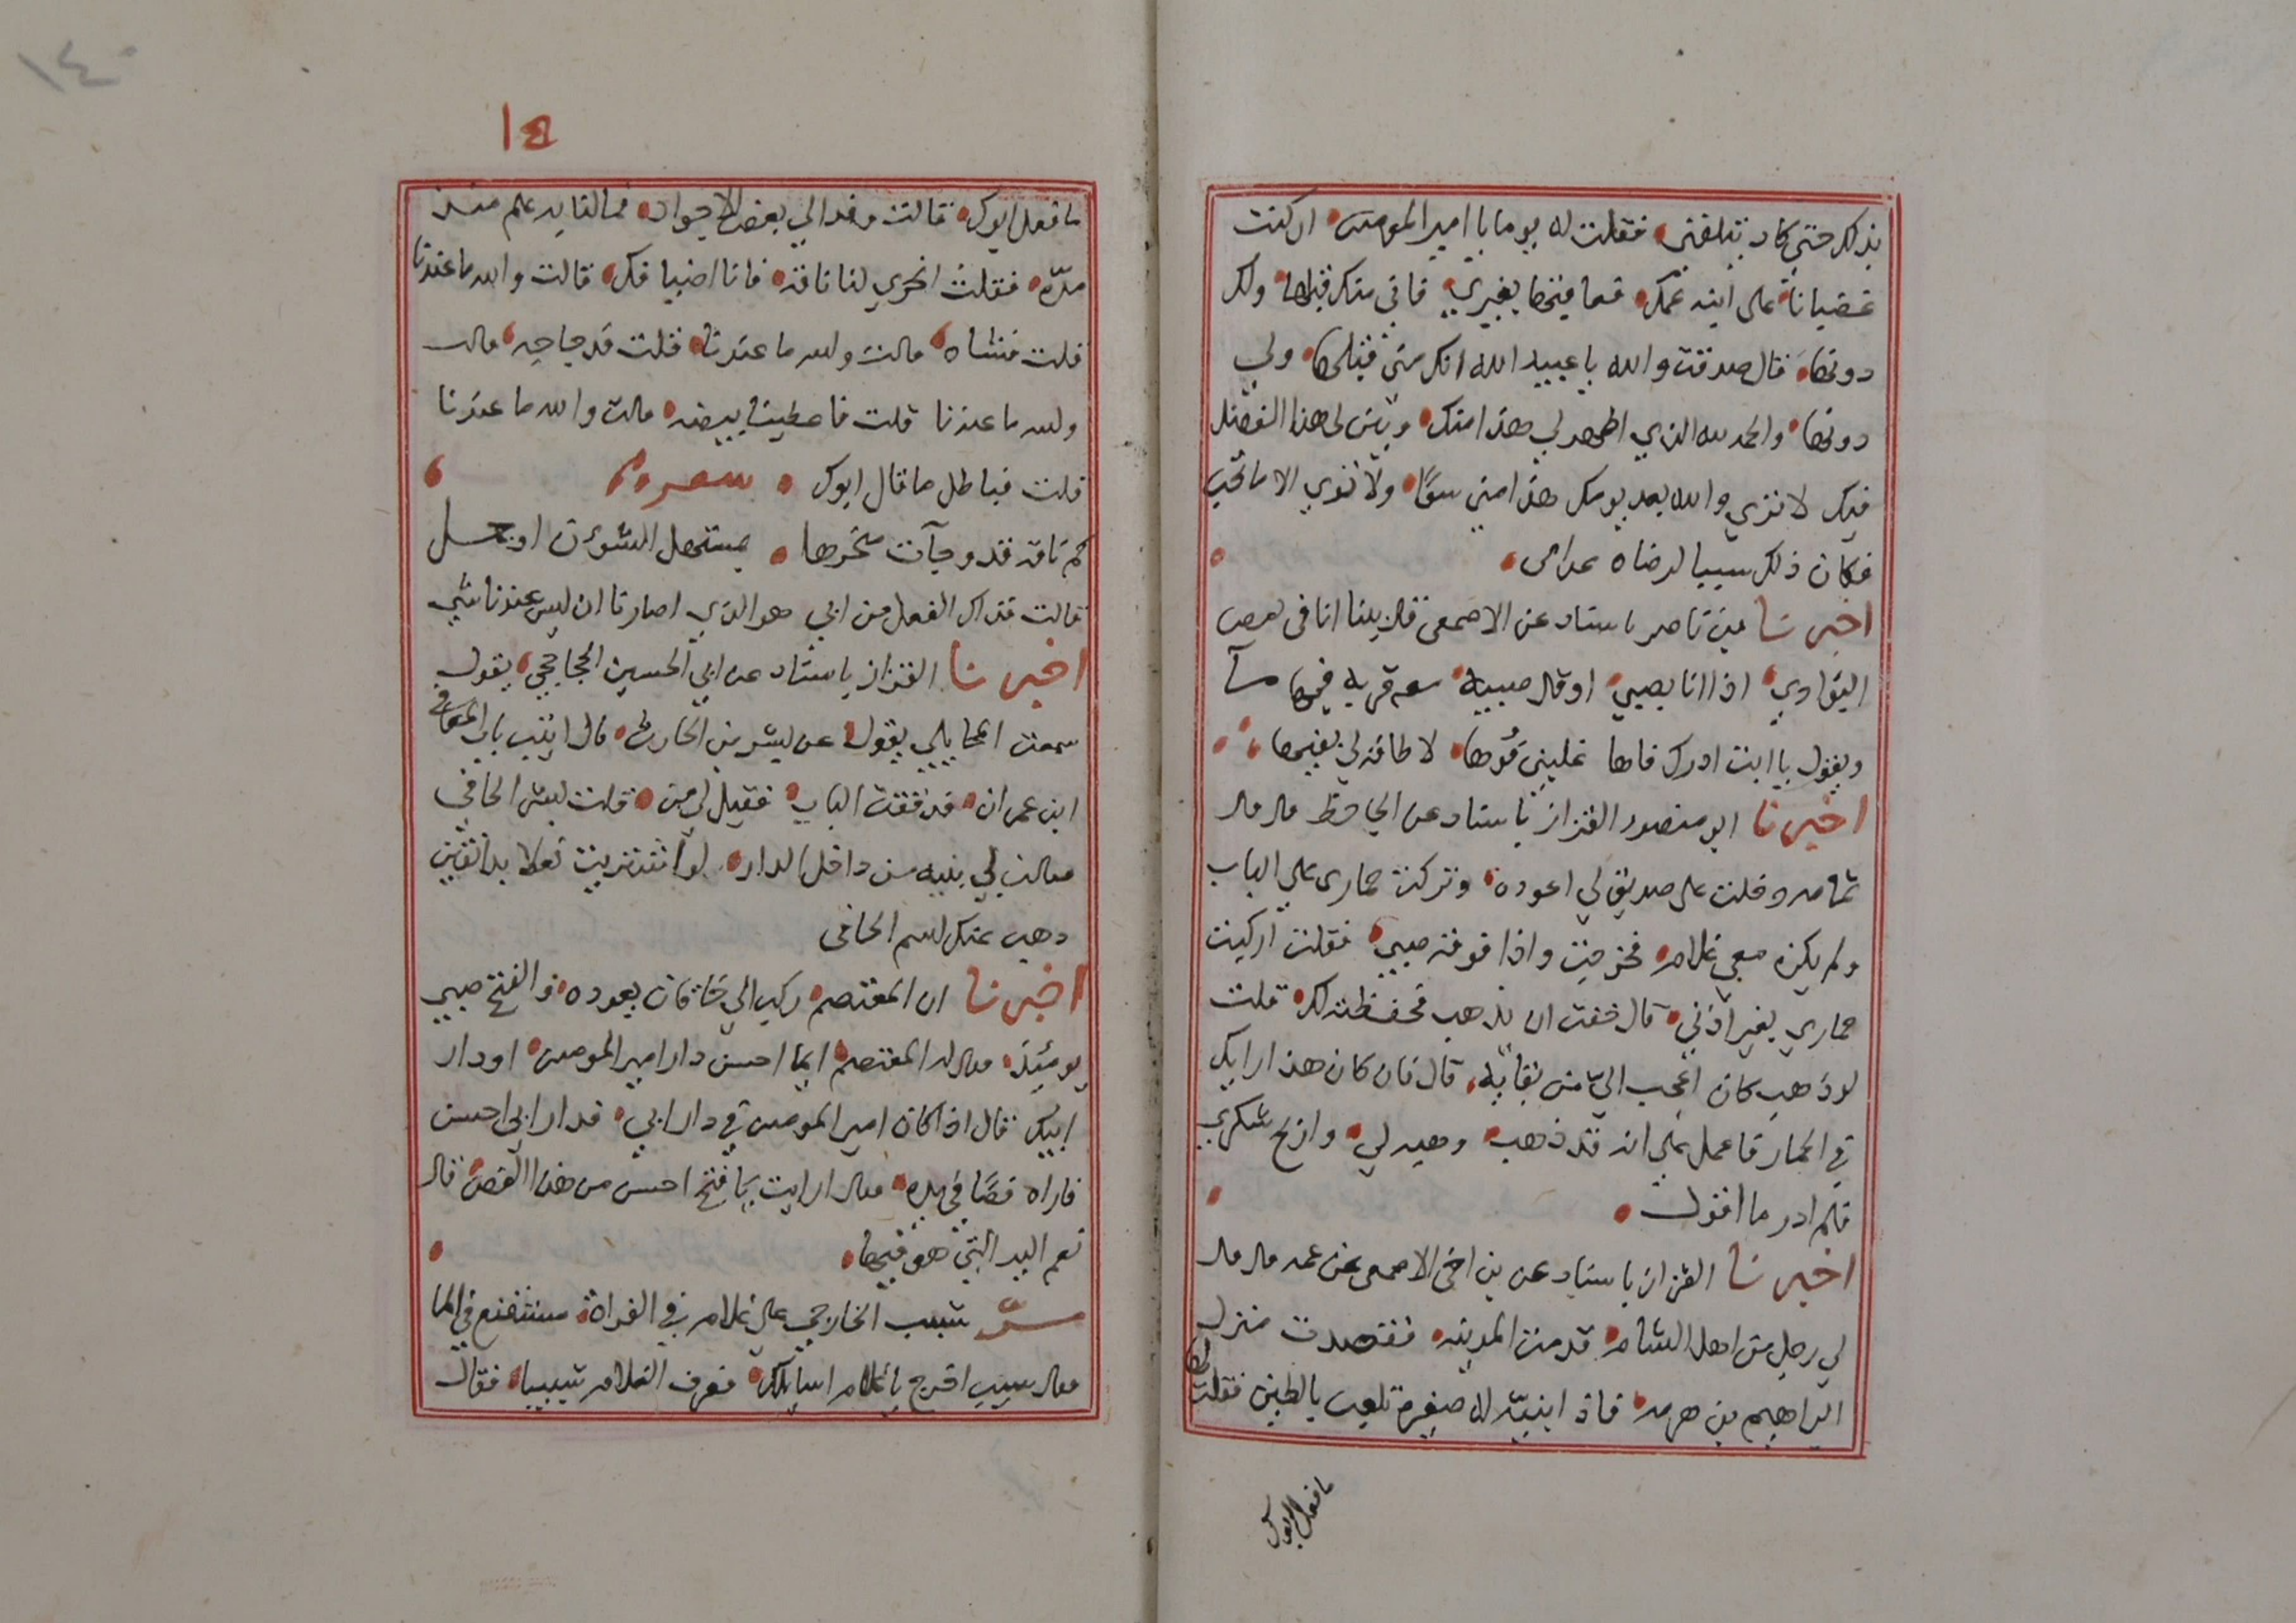 بذلك حتى كاد يتلفنى فقلت له يوما يا امير المومنين ان كنت
غضبانا على ابنة عمك فعاقبتها بغيري فانى منك قبلها ولك
دونها قال صدقت والله يا عبيد الله انك منى قبلها ولي
دونها والحمد لله الذي اظهر لي هذا منك وبين لى هذا الفضل
فيك لا تري والله بعد يومك هذا مني سوًا ولا تري الا ما تحب
فكان ذلك سببا لرضاه عن امى
اخبرنا بن ناصر باسناد عن الاصمعى قال بينا انا فى بعض
البوادي اذا انا بصبي او قال صبية معه قربه فيها مآ
ويقول يا ابت ادرك فاها غلبني فوها لا طاقة لي بفيها
اخبرنا ابو منصور القزاز باسناد عن الجاحظ قال قال
ثمامه دخلت على صديق لي اعوده وتركت حماري علي الباب
ولم يكن معي غلام فخرجت واذا فوقه صبي فقلت اركبت
حماري بغير اذني قال خفت ان يذهب فحفظته لك قلت
لو ذهب كان اعجب الي من بقايه قال فان كان هذا رايك
في الحمار فاعمل علي انه قد ذهب وهبه لي واربح شكري
فلم ادر ما اقول
اخبرنا القزاز باسناد عن بن اخى الاصمعى عن عمه قال قال
لي رجل من اهل الشام قدمت المدينه فقصدت منزل
ابراهيم بن هرمه فاذ ابنيّه له صغيرة تلعب بالطين فقلت لها
ما فعل ابوك
١٤
١٤٠
ما فعل ابوك قالت وفد الي بعض الاجواد فمالنا به علم منذ
مدّه فقلت انحري لنا ناقه فانا اضيافك قالت والله ما عندنا
قلت فشاه قالت والله ما عندنا قلت فدجاجه قالت
والله ما عندنا قلت فاعطينا بيضه قالت والله ما عندنا
قلت فباطل ما قال ابوك
كم ناقه قد وجأت منحرها بمستهل الشوبوب او جمل
قالت فذاك الفعل من ابي هو الذي اصارنا ان ليس عندنا شي
اخبرنا القزاز باسناد عن ابي الحسين الحجاجي يقول
سمعت المحاملي يقول عن بشر بن الحارث قال اتيت باب المعافي
ابن عمران فدققت الباب فقيل لي من قلت بشر الحافي
فقالت لي بنيه من داخل الدار لو اشتريت نعلا بدانقين
ذهب عنك اسم الحافى
اخبرنا ان المعتصم ركب الي خاقان يعوده والفتح صبي
يومئذ فقال له المعتصم ايما احسن دار امير المومنين او دار
ابيك قال اذا كان امير المومنين في دار ابي فدار ابي احسن
فاراه فصًا في يده فقال ارايت يا فتح احسن من هذا الفص قال
نعم اليد التي هو فيها
مرّ شبيب الخارجي على غلام في الفراة يستنقع في الما
فقال شبيب اخرج يا غلام اسايلك فعرف الغلام شبيبا فقال